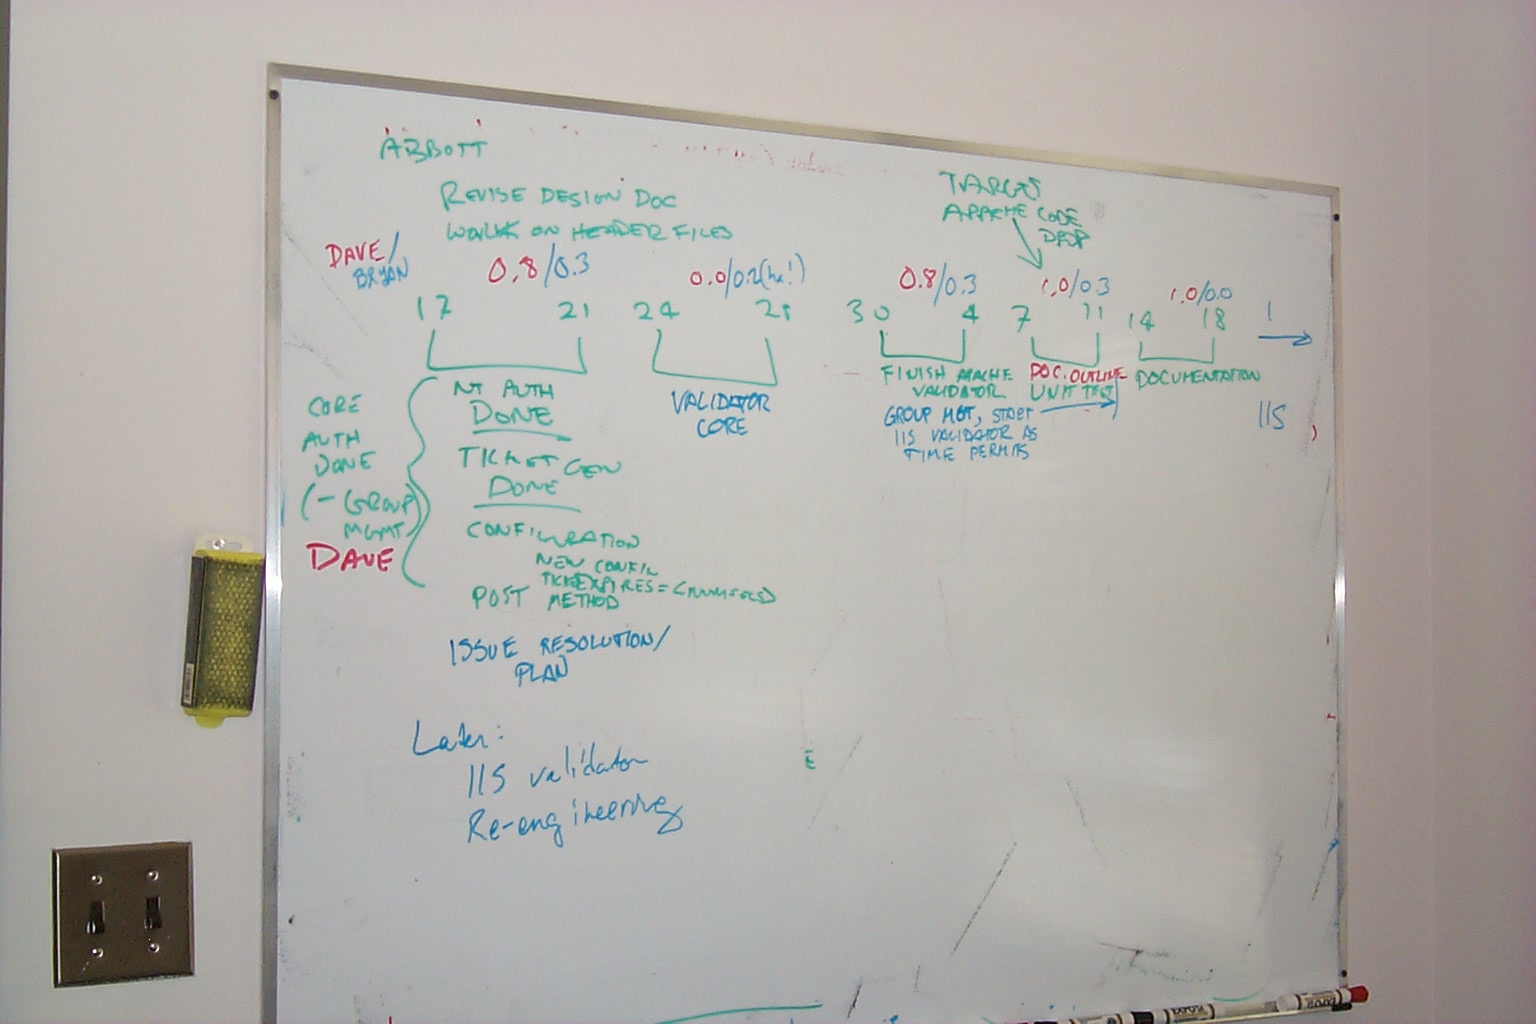 ABBOTT
REVISE DESIGN DOC
WORK ON HEADER FILES
TARGET
APACHE CODE
DROP
DAVE/
BRYAN
0.8/0.3
0.0/0.2(ha!)
0.8/0.3
1.0/0.3
1.0/0.0
17 21 24 28 30 4 7 11 14 18 1
CORE
AUTH
DONE
(- GROUP
MGMT)
DAVE
NT AUTH
DONE
TICKET GEN
DONE
CONFIGURATION
NEW CONFIG
POST METHOD
ISSUE RESOLUTION/
PLAN
VALIDATOR
CORE
FINISH APACHE
VALIDATOR
GROUP MGT, START
IIS VALIDATOR AS
TIME PERMITS
DOC. OUTLINE
UNIT TEST
DOCUMENTATION
IIS
Later:
IIS validator
Re-engineering
E